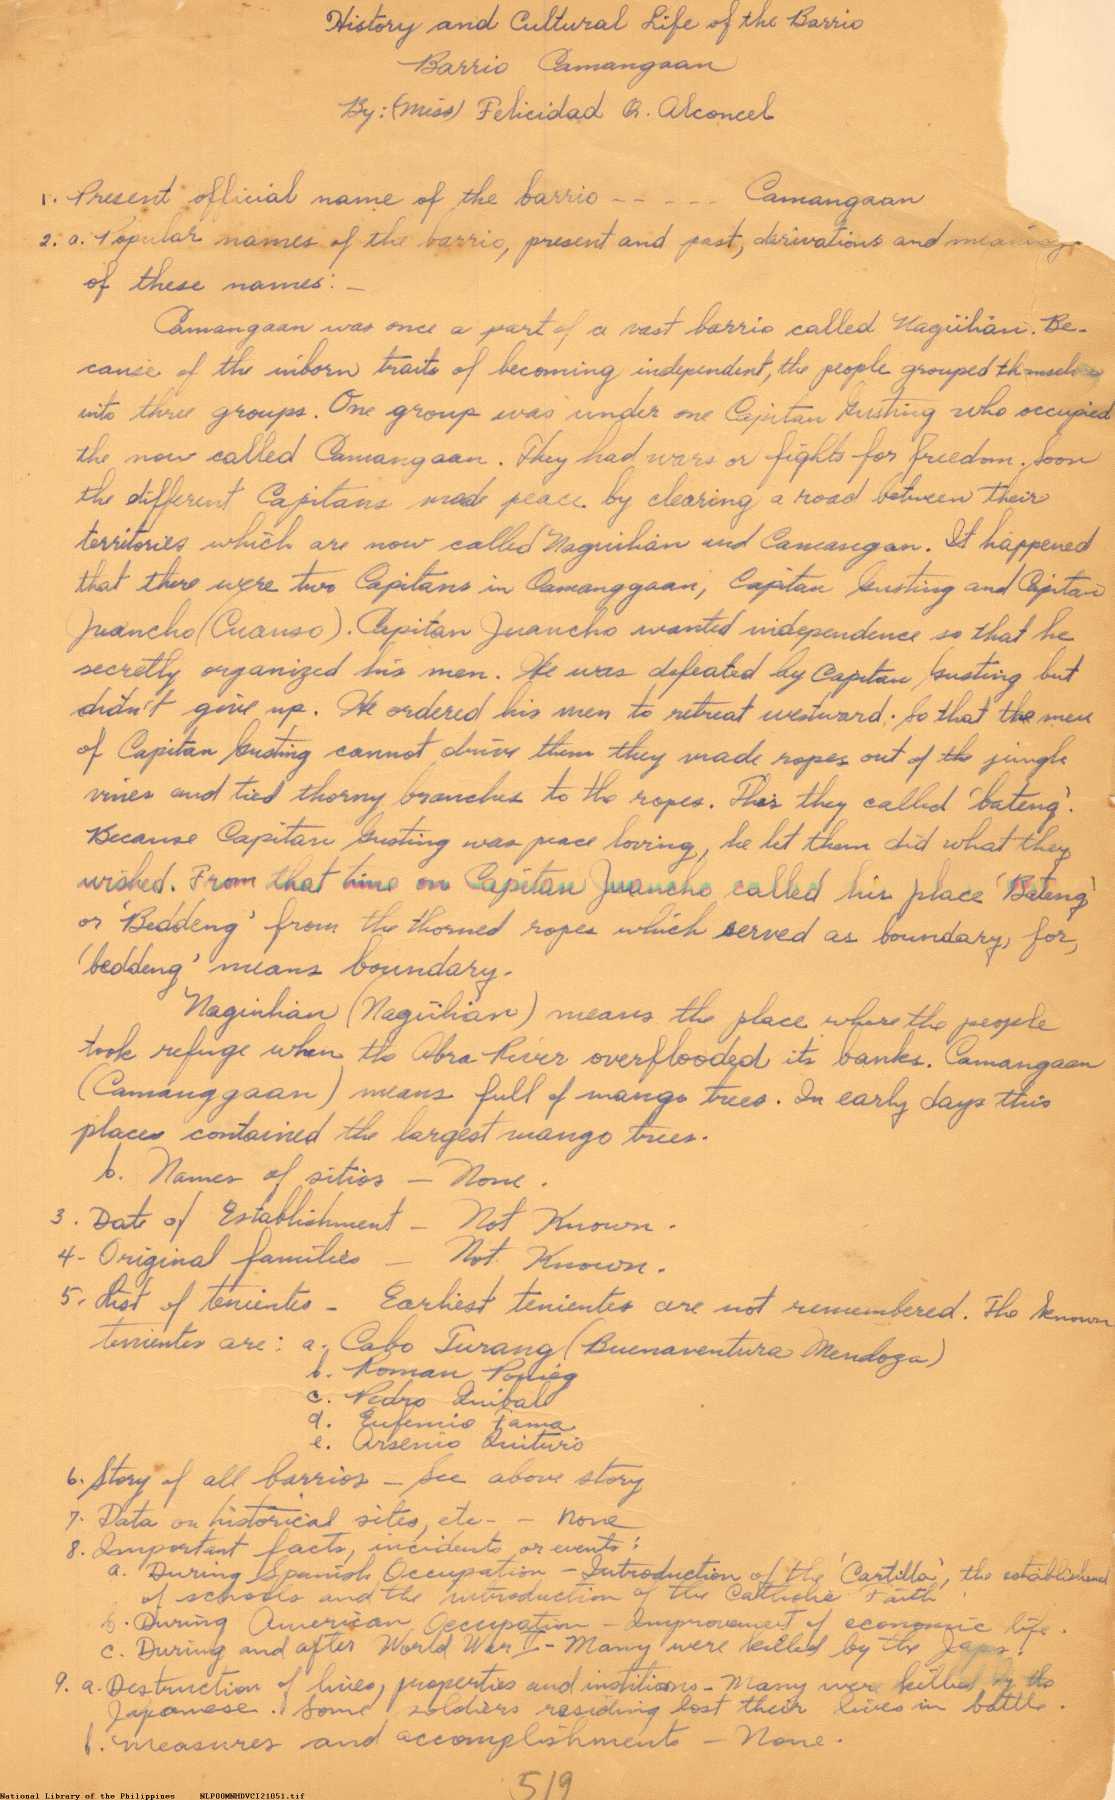 History and Cultural Life of the Barrio
Barrio Camangaan
By: (Miss) Felicidad Q. Alconcel
1. Present official name of the barrio - - - - - Camangaan
2. a. Popular names of the barrio, present and past, derivations and meanings
of these names: -
Camangaan was once a part of a vast barrio called Nagüihian. Be-
cause of the inborn traits of becoming independent, the people grouped themselves
into three groups. One group was under one Capitan Gusting who occupied
the now called Camangaan. They had wars or fights for freedom. Soon
the different Capitans made peace by clearing a road between their
territories which are now called Naguihian and Camangan. It happened
that there were two Capitans in Camanggaan, Capitan Gusting and Capitan
Juancho (Cuanso). Capitan Juancho wanted independence so that he
secretly organized his men. He was defeated by Capitan Gusting but
didn't give up. He ordered his men to retreat westward. So that the men
of Capitan Gusting cannot drive them they made ropes out of the jungle
vines and tied thorny branches to the ropes. This they called 'bateng'.
Because Capitan Gusting was peace loving, he let them did what they
wished. From that time on Capitan Juancho called his place 'Bateng'
or 'Beddeng' from the thorned ropes which served as boundary, for,
'beddeng' means boundary.
Naguihian (Nagüihian) means the place where the people
took refuge when the Abra River overflooded its banks. Camangaan
(Camanggaan) means full of mango trees. In early days this
place contained the largest mango trees.
b. Names of sitios - None.
3. Date of Establishment - Not Known.
4- Original families - Not Known.
5. List of tenientes - Earliest tenientes are not remembered. The known
tenientes are: a. Cabo Turang (Buenaventura Mendoza)
b. Roman
c. Pedro
d. Eufemio Tama
e. Arsenio Quituro
6. Story of all barrios - See above story
7. Data on historical sites, etc- - None
8. Important facts, incidents or events:
a. During Spanish Occupation - Introduction of the 'Cartilla', the established
of schools and the introduction of the Catholic Faith
b. During American Occupation - Improvement of economic life.
c. During and after World War II - Many were killed by the Japs.
9. a. Destruction of lives, properties and institions - Many were killed by the
Japanese. Some soldiers residing lost their lives in battle.
b. Measures and accomplishments - None.
519
National Library of the Philippines NLPOOMNHDVCI21051.tif